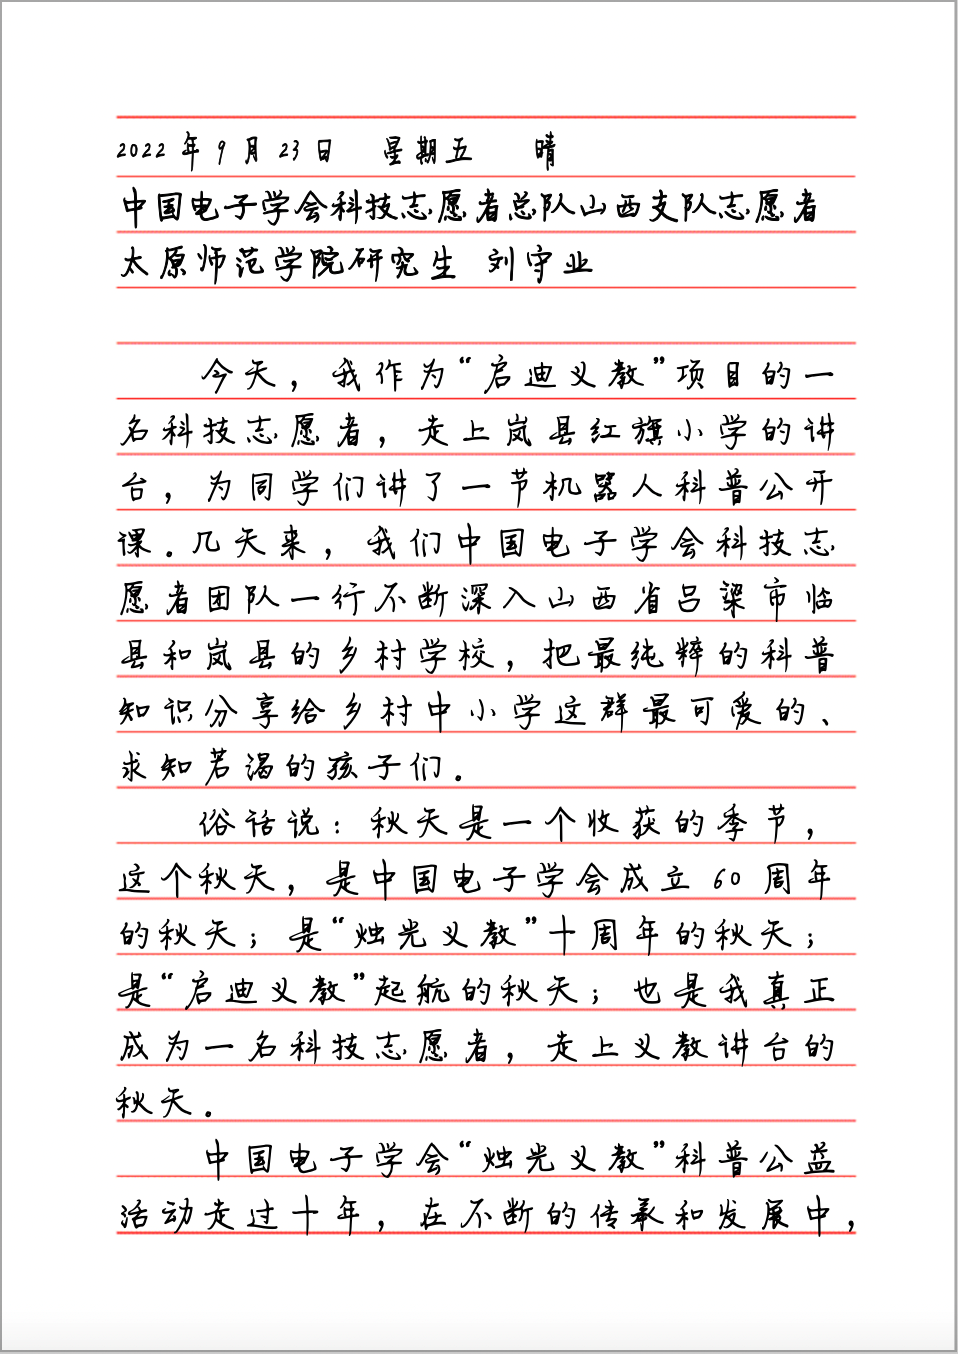 2022年9月23日 星期五 晴
中国电子学会科技志愿者总队山西支队志愿者
太原师范学院研究生 刘守业
今天，我作为“启迪义教”项目的一
名科技志愿者，走上岚县红旗小学的讲
台，为同学们讲了一节机器人科普公开
课.几天来，我们中国电子学会科技志
愿者团队一行不断深入山西省吕梁市临
县和岚县的乡村学校，把最纯粹的科普
知识分享给乡村中小学这群最可爱的、
求知若渴的孩子们.
俗话说：秋天是一个收获的季节，
这个秋天，是中国电子学会成立60周年
的秋天；是“烛光义教”十周年的秋天；
是“启迪义教”起航的秋天；也是我真正
成为一名科技志愿者，走上义教讲台的
秋天.
中国电子学会“烛光义教”科普公益
活动走过十年，在不断的传承和发展中，